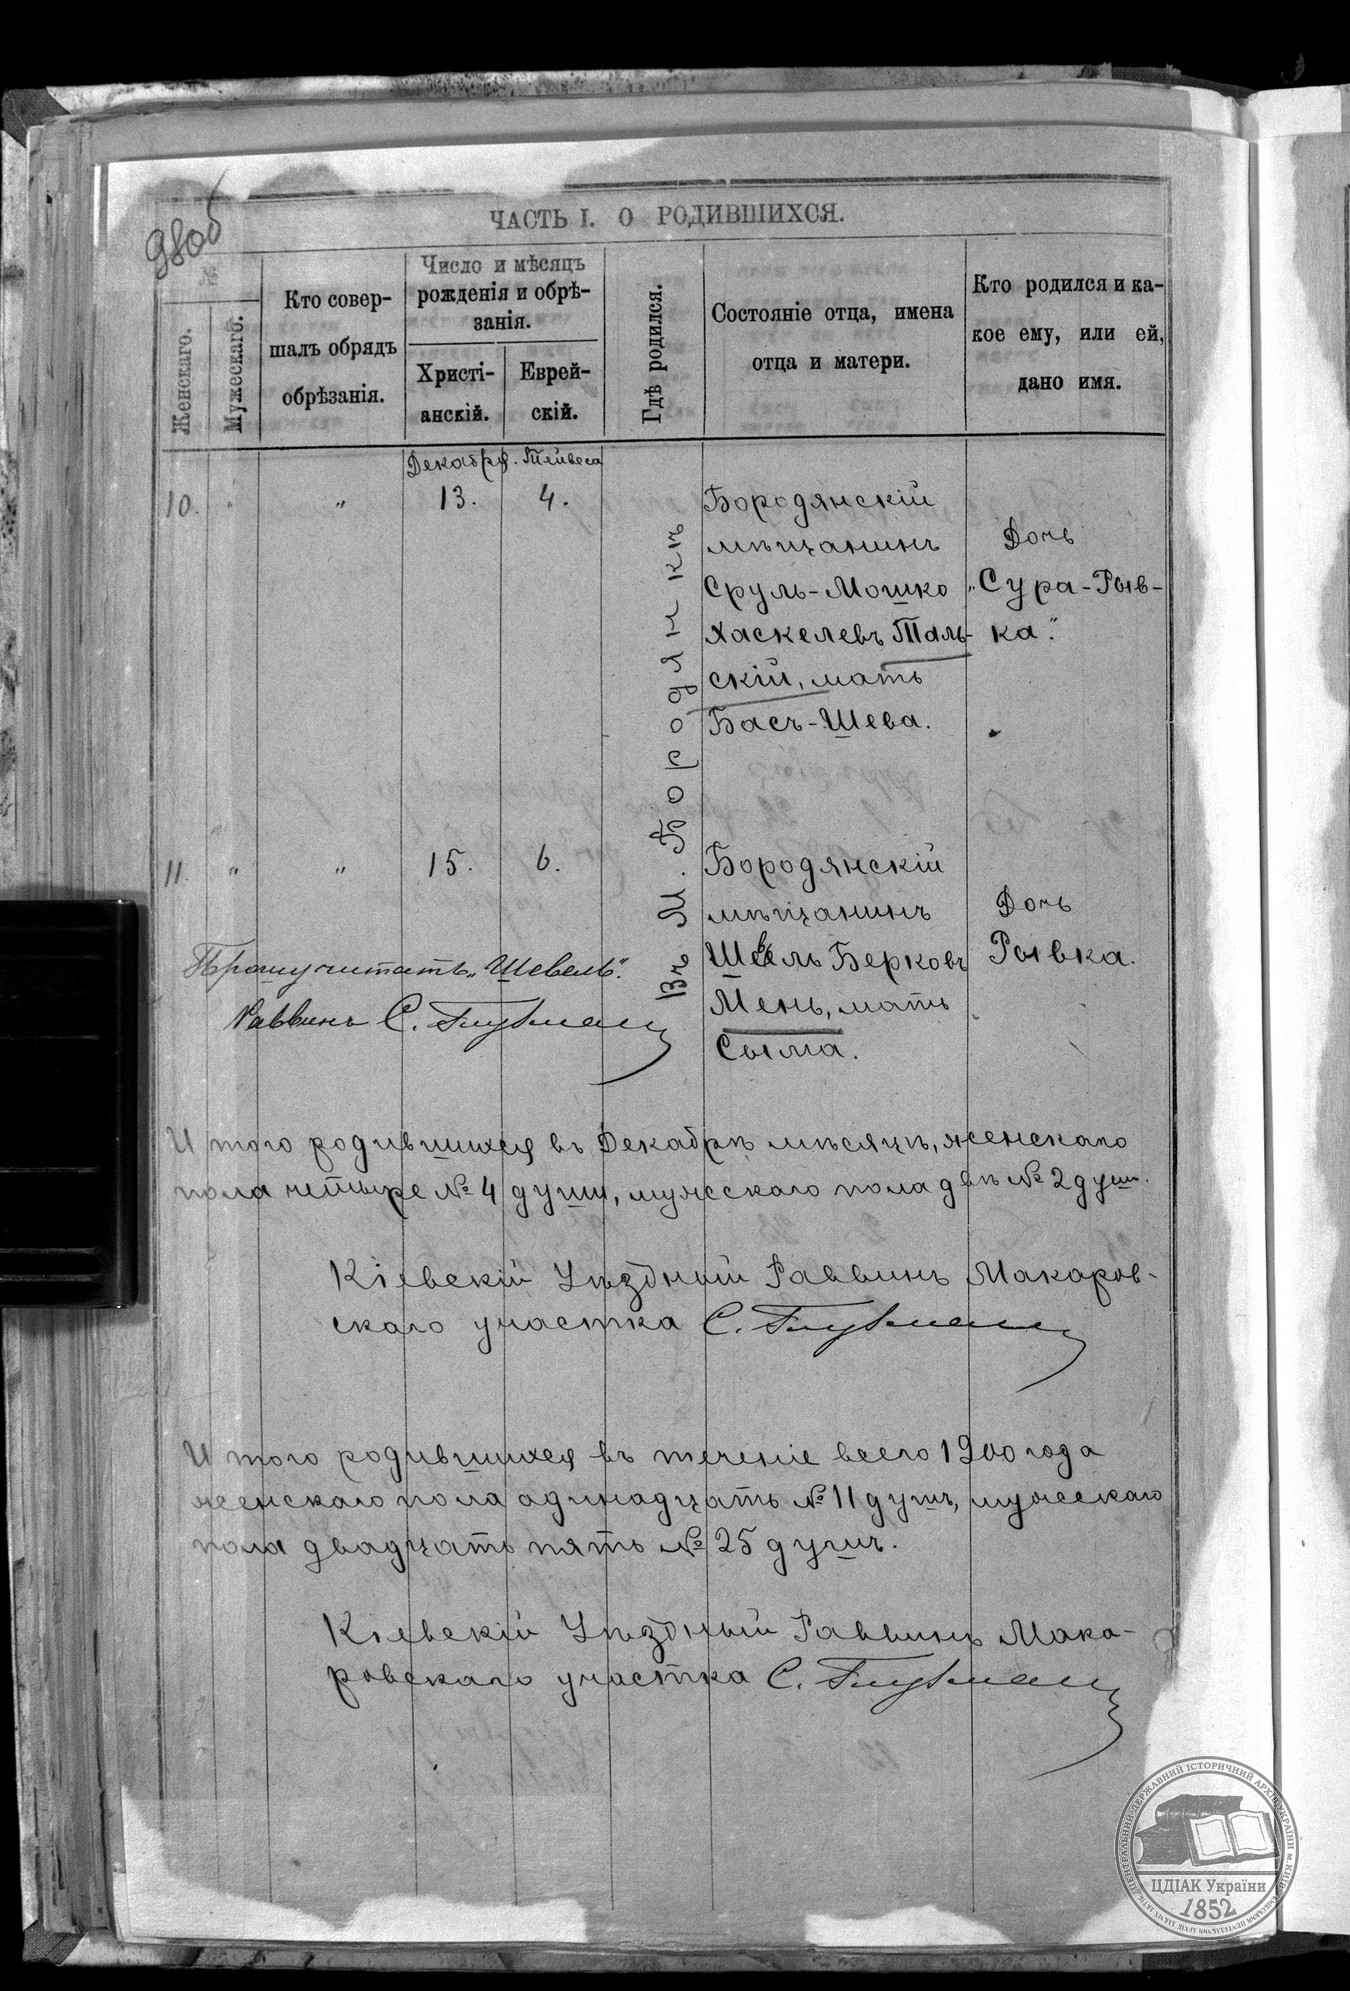 980б
ЧАСТЬ I. О РОДИВШИХСЯ.
№
Женскаго.
Мужескаго.
Кто совер-
шалъ обрядъ
обрѣзанія.
Число и мѣсяцъ
рожденія и обрѣ-
занія.
Христі-
анскій.
Еврей-
скій.
Гдѣ родился.
Состояніе отца, имена
отца и матери.
Кто родился и ка-
кое ему, или ей,
дано имя.
Декабря. Тейвеса
10. " " 13. 4.
Въ М. Бородянкѣ
Бородянскій
мѣщанинъ
Сруль-Мошко
Хаскелевъ Таль-
скій, мать
Бася-Шева.
Дочь
"Сура-Рыв-
ка".
11. " " 15. 6.
Бородянскій
мѣщанинъ
Шевель Берковъ
Мень, мать
Сыма.
Дочь
Рывка.
Прошу читать "Шевель".
Раввинъ С.
И того родившихся въ Декабрѣ мѣсяцѣ, женскаго
пола четыре № 4 души, мужескаго пола двѣ № 2 души.
Кіевскій Уѣздный Раввинъ Макаров-
скаго участка С.
И того родившихся въ теченіе всего 1900 года
женскаго пола адинадцать № 11 душъ, мужескаго
пола двадцать пять № 25 душъ.
Кіевскій Уѣздный Раввинъ Мака-
ровскаго участка С.
ЦЕНТРАЛЬНИЙ ДЕРЖАВНИЙ ІСТОРИЧНИЙ АРХІВ УКРАЇНИ М. КИЇВ
ЦДІАК України
1852